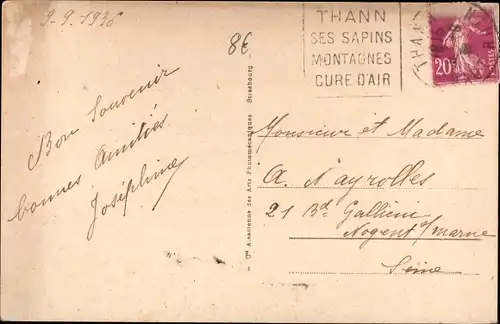 9-9.1936
8€
THANN
SES SAPINS
MONTAGNES
CURE D'AIR
THANN
20c
Bon Souvenir
bonnes Amitiés
Joséphine
Cie Alsacienne des Arts Photomécaniques Strasbourg
Monsieur et Madame
A. Nayrolles
21 Bd Gallieni
Nogent s/marne
Seine